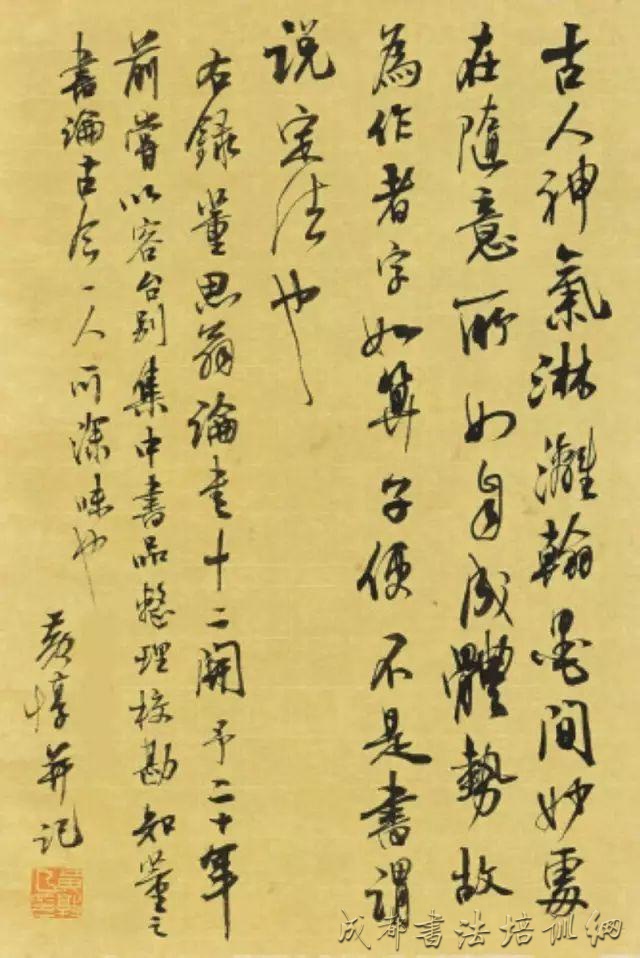 古人神氣淋灕翰墨間妙處
在隨意所如自成體勢故
為作者字如算子便不是書謂
说定法也
右録董思翁論書十二開予二十年
前嘗以容台别集中書品整理校勘知董之
書論古今一人深味也
黄惇并记
成都書法培训網